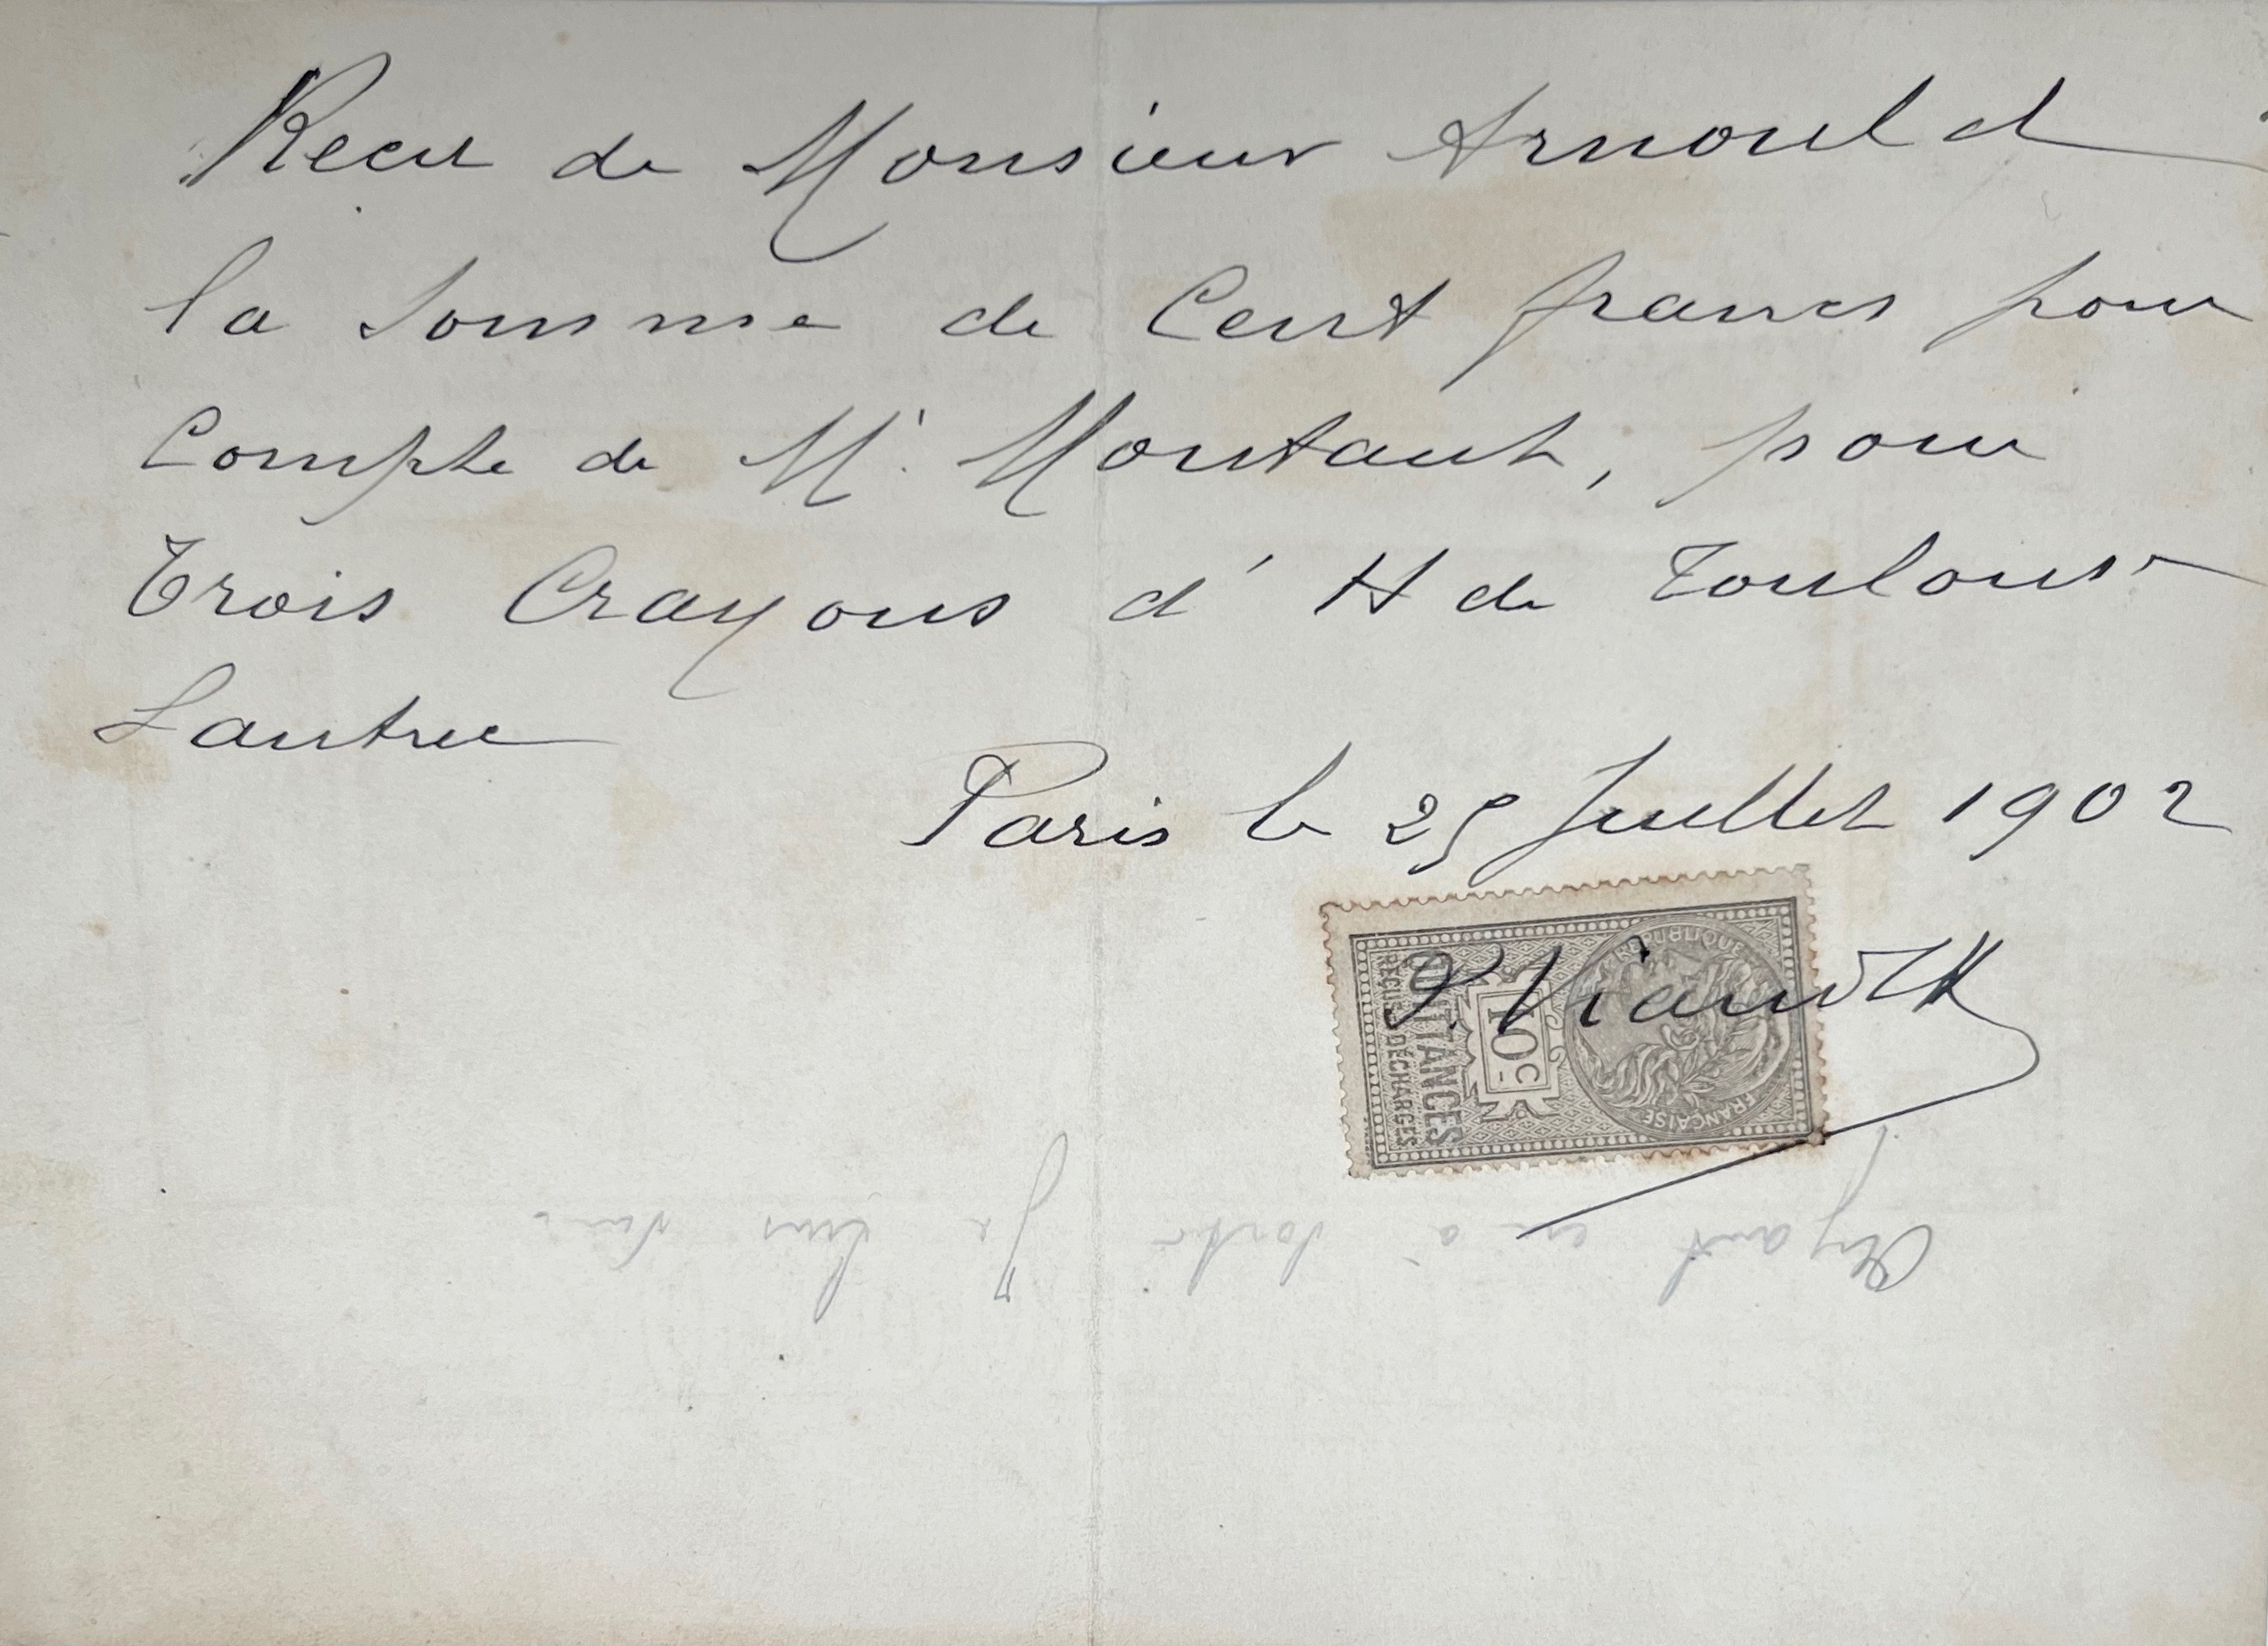 Recu de Monsieur Arnould
la somme de Cent francs pour
Compte de Mr. Montaut, pour
Trois Crayons d' H de Toulouse
Lautrec
Paris le 25 Juillet 1902
RÉPUBLIQUE FRANÇAISE
10c
QUITTANCES
REÇUS DÉCHARGES
Ayant à Je